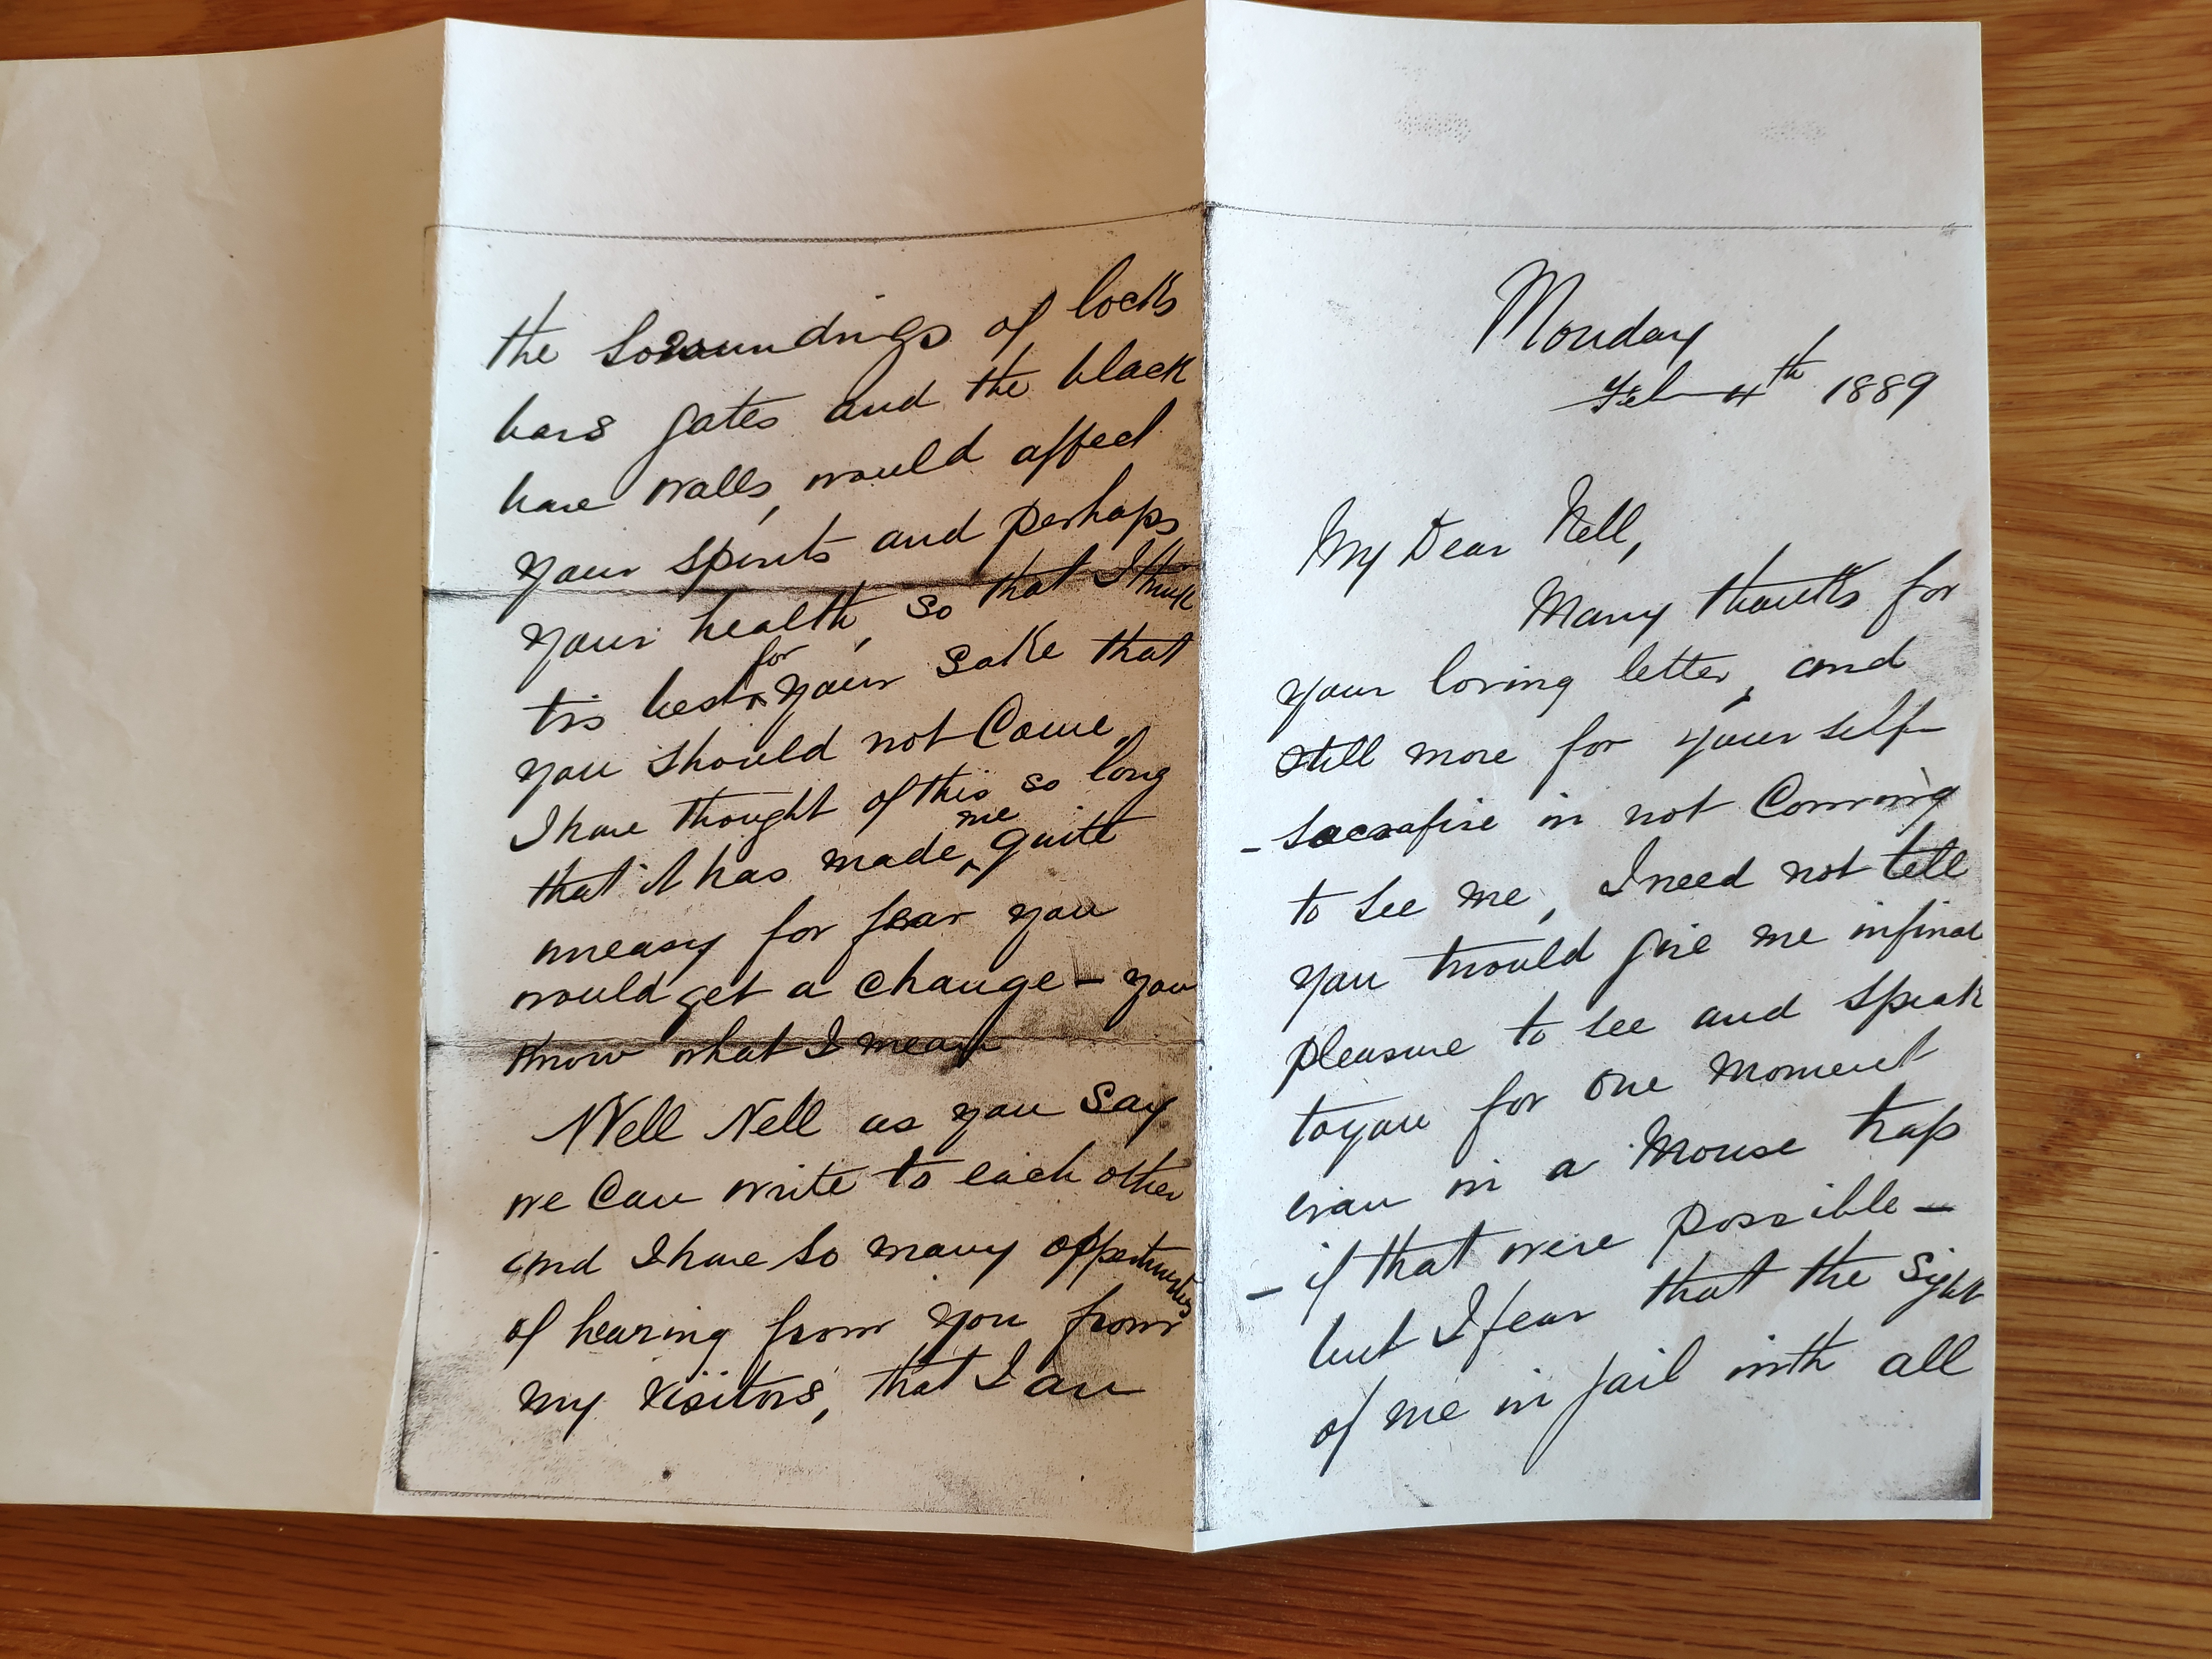 Monday
Feb 4th 1889
My Dear Nell,
Many thanks for
your loving letter, and
still more for yourself
- sacrafise in not Comming
to see me, I need not tell
you twould give me infinat
pleasure to see and speak
to you for one moment
evan in a Mouse trap
- if that were possible -
but I fear that the sight
of me in jail with all
the souroundings of locks
bars gates and the black
bare walls, would affect
your spirits and perhaps
your health, so that I think
tis best for your sake that
you should not Come,
I have thought of this so long
that it has made me quite
uneasy for fear you
would get a change - you
know what I mean
Well Nell as you say
we Can write to each other
and I have so many oppertunities
of hearing from you from
my visitors, that I am